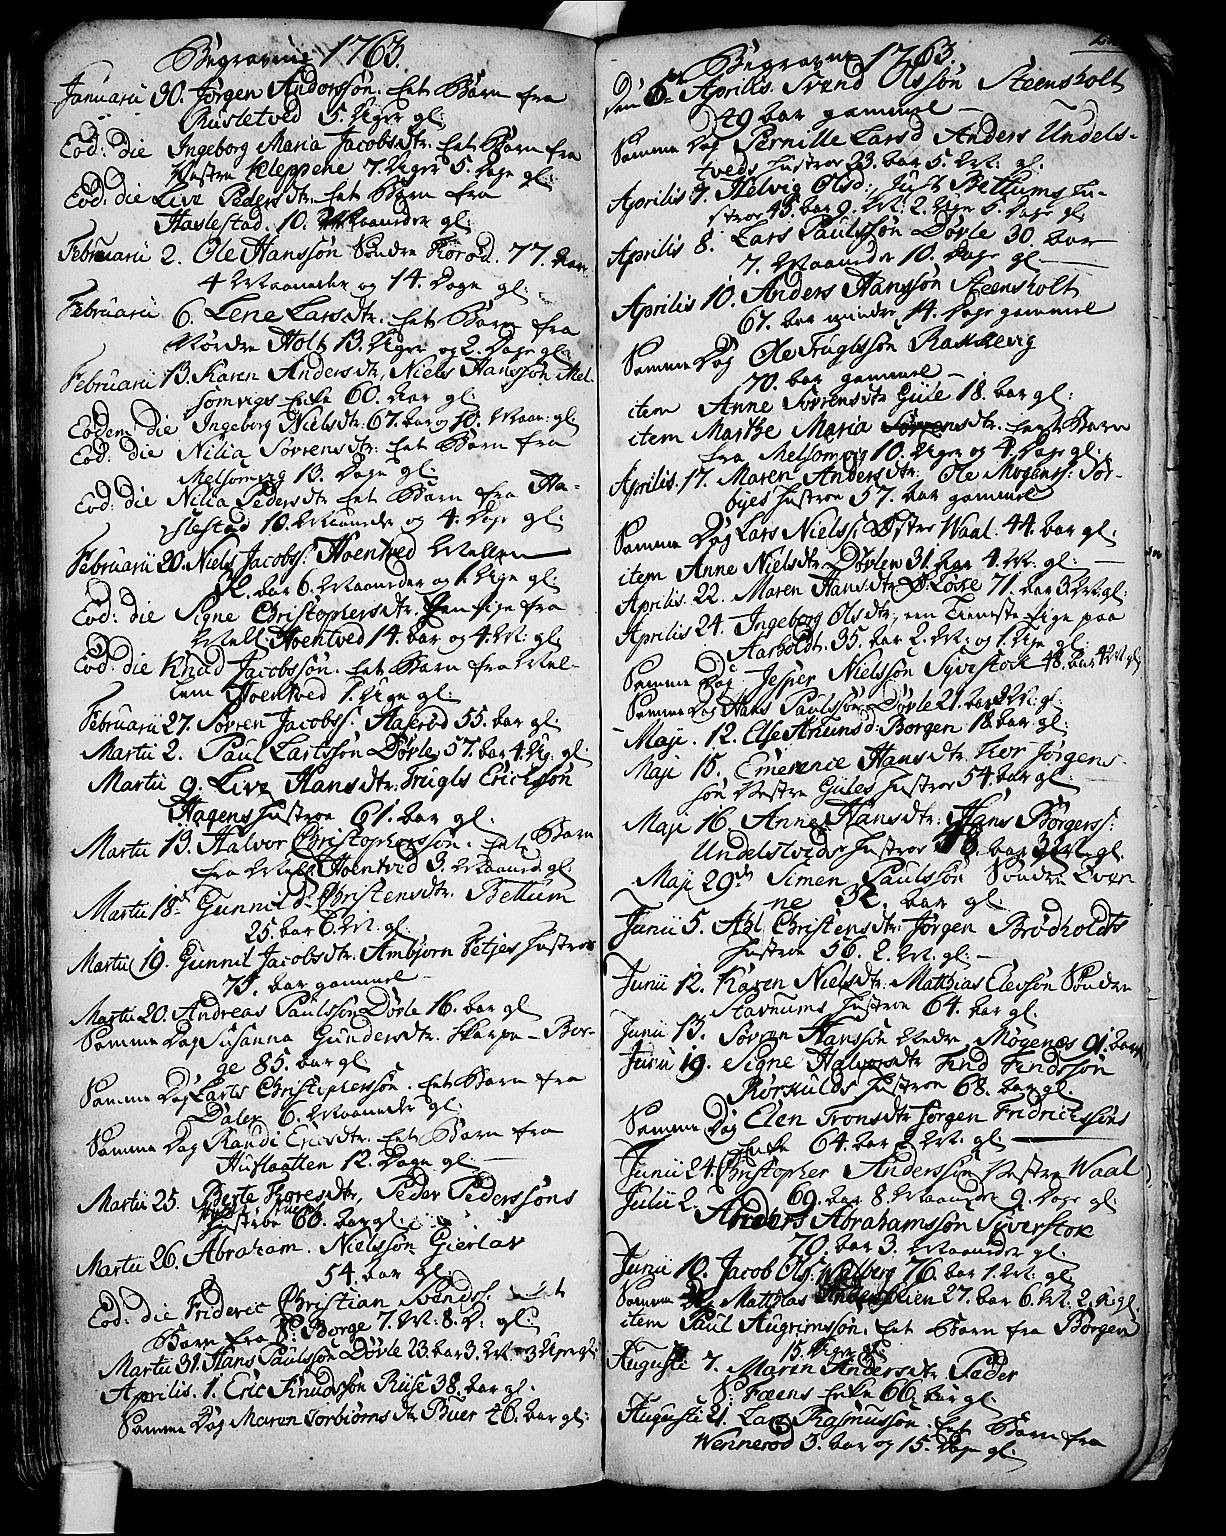 Begravne 1763.
Januarii 30. Jørgen Andersøn. Eet Barn fra
Rusletved 5. Uger gl:
Eod: die Ingeborg Maria Jacobsdtr: Eet Barn fra
Westre Kleppene 7. Uger 5. Dage gl:
Eod: die Live Pedersdtr. Eet Barn fra
Haslestad. 10. Maaneder gl:
Februarii 2. Ole Hanssøn Søndre 77. Aar
4 Maaneder og 14. Dage gl:
Februarii 6. Lene Larsdtr. Eet Barn fra
Nordre Holt 13. Uger og 2. Dage gl:
Februarii 13. Karen Andersdtr, Niels Hanssøn Mel-
somvigs Enke 60. Aar gl:
Eodem die Ingeborg Nielsdtr. 67. Aar og 10. Maan: gl:
Eod: die Nilia Sørensdtr. Eet Barn fra
Melsomvig 13. Dage gl:
Eod: die Nilia Pedersdtr Eet Barn fra Ha-
slestad 10. Maaneder og 4. Dage gl:
Februarii 20. Niels Jacobss: Hoentved Mellem
Aar 6. Maaneder og 1. Uge gl:
Eod: die Signe Christophersdtr. Een Pige fra
Mell: Hoentved 14. Aar og 4. M: gl:
Eod: die Knud Jacobssøn. Eet Barn fra Mel-
lem Hoentved 1. Uge gl:
Februarii 27. Søren Jacobss: Aakerød 55. Aar gl:
Martii 2. Paul Larssøn Døvle 57. Aar 4. Ug. gl:
Martii 9. Live Hansdtr: Trugls Erichsøn
Hagens Hustroe 61. Aar gl:
Martii 13. Halvor Christophersøn. Eet Barn
fra Mell: Hoentved 3. Maaned: gl:
Martii 18. Gunnild Christensdtr. Bettum
25. Aar 6. M. gl:
Martii 19. Gunnil Jacobsdtr. Ambjørn Fetjes Hustroe
75. Aar gammel
Martii 20. Andreas Paulssøn Døvle 16. Aar gl:
Samme Dag Susanna Gundersdtr. Skarpe-Bor-
ge 85. Aar gl:
Samme Dag Lars Christophersøn. Eet Barn fra
Dalen 6. Maaneder gl:
Samme Dag Randi Ericsdtr. Eet Barn fra
Huslaatten 12. Dage gl:
Martii 25. Berte Thoresdtr, Peder Pederssøns
Hustroe 60. Aar gl:
Martii 26. Abraham Nielssøn Gierlar
54. Aar gl:
Eod: die Frideric Christian Svends: Eet
Barn fra S: Borge 7. M. 8. D. gl:
Martii 31. Hans Paulssøn Døvle 23. Aar 3. M. 3 Uger gl:
Aprilis 1. Eric Knudssøn Riise 38. Aar gl.
Samme Dag Maren Torbiørnsdtr Buer 46. Aar gl:
Begravne 1763.
Den 6te Aprilis. Svend Olssøn Steensholt
49 Aar gammel
Samme Dag Pernille Larsd. Anders Undels-
tveds Hustroe 23. Aar 5. M: gl.
Aprilis 7. Helvig Olsd: Just Bettums Hu-
stroe 45. Aar 9. M. 2. Uger 5. Dage gl.
Aprilis 8. Lars Paulssøn Døvle 30. Aar
7. Maaneder 10. Dage gl:
Aprilis 10. Anders Hanssøn Steensholt
67. Aar mindre 14. Dage gammel
Samme Dag Ole Truglssøn Rakkevig
70. Aar gammel
item Anne Sørensdtr Guile 18. Aar gl:
item Marthe Maria Sørensdtr. Eet Barn
fra Melsomvig 10. Uger og 4. Dage gl:
Aprilis 17. Maren Andersdtr. Ole Mogenss: Sør-
byes Hustroe 57. Aar gammel
Samme Dag Lars Nielss: Øster Waal 44. Aar gl.
item Anne Nielsdtr. Døvlen 31. Aar 4. M: gl:
Aprilis 22. Maren Hansdtr. 71. Aar 3. M. gl:
Aprilis 24. Ingeborg Olsdtr, een Tieneste Pige paa
Aarholdt. 35. Aar 2. M: og 1. Uge gl:
Samme Dag Jesper Nielssøn Syverstok 48. Aar 4 M gl
Samme Dag Hans Paulssøn Døvle 21. Aar gl:
Maji. 12. Else Amunsd: Borgen 18. Aar gl:
Maji 15. Emerence Hansdtr. Jørgens-
søn Vestre Guiles Hustroe 54. Aar gl:
Maji 16. Anne Hansdtr: Hans Børgerss:
Undelstveds Hustroe Aar gl:
Maji 29de Simen Paulssøn Søndre
ne 32. Aar gl:
Junii 5. Abl: Christensdtr: Jørgen Brødholdts
Hustroe 56. 2. M. gl:
Junii 12. Karen Nielsdtr: Matthias Elevssøn Søndre
Stavnums Hustroe 64. Aar gl:
Junii 13. Søren Hanssøn Møgenæs 91. Aar gl
Junii 19. Signe Halvorsdtr Find Findssøn
Rørkulds Hustroe 68. Aar gl
Samme Dag Elen Tronsdtr Jørgen Fridrichssøns
Enke 64. Aar 2. M. gl:
Junii 24. Christopher Anderssøn Vestre Waal
69. Aar 8. Maaneder 9. Dage gl:
Julii 2. Anders Abrahamssøn Syverstok
70. Aar 3. Maaneder gl.
Junii 10. Jacob Ols: Wølberg 76. Aar 1. M. gl.
Samme Dag Matthias 27. Aar 6. M. 2. U. gl.
item Paul Augrimssøn. Eet Barn fra Borgen
15. Uger gl:
Augusti 7. Maren Andersdtr Peder
S: Fæens Enke 66. Aar gl
Augusti 21. Lars Rasmussøn. Eet Barn fra
Wennerød 3. Aar og 15. Dage gl: